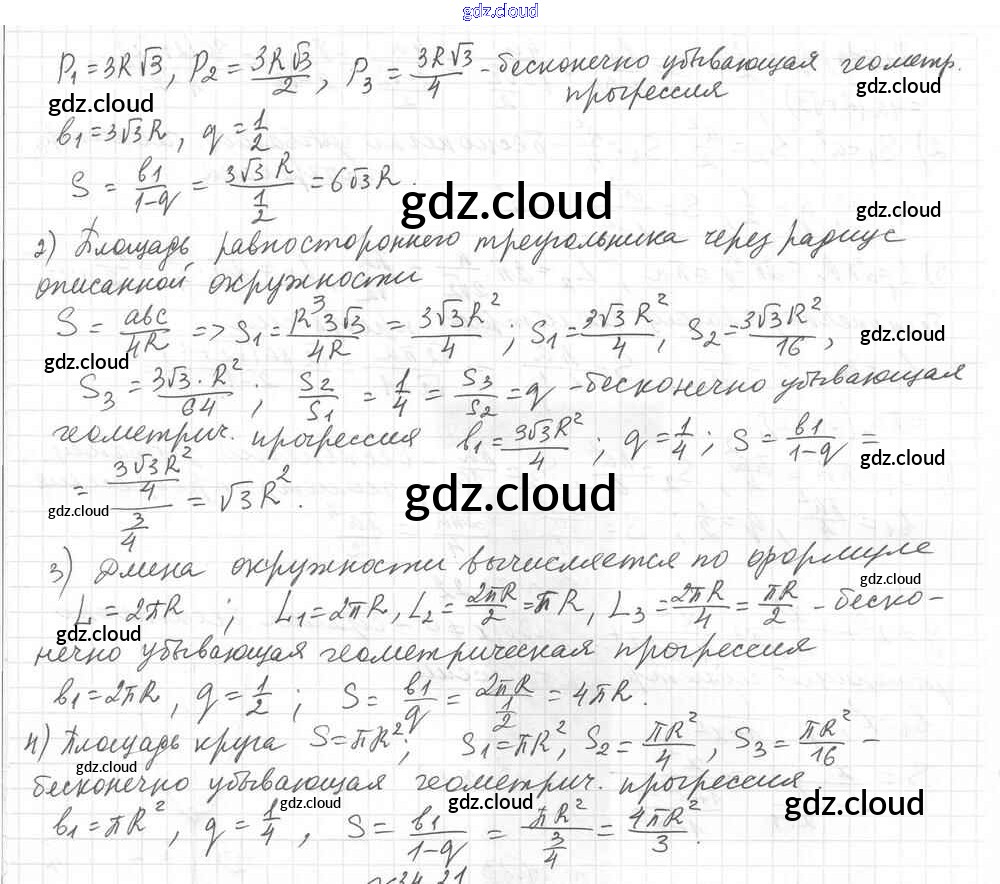 gdz.cloud
P₁ = 3R√3, P₂ = 3R√3/2, P₃ = 3R√3/4 - бесконечно убывающая геометр.
прогрессия
gdz.cloud
gdz.cloud
b₁ = 3√3R, q = 1/2
S = b₁/(1-q) = 3√3R/(1/2) = 6√3R.
gdz.cloud
gdz.cloud
2) Площадь равностороннего треугольника через радиус
описанной окружности
S = abc/4R => S₁ = R³3√3/4R = 3√3R²/4; S₁ = 3√3R²/4, S₂ = 3√3R²/16,
gdz.cloud
gdz.cloud
S₃ = 3√3·R²/64; S₂/S₁ = 1/4 = S₃/S₂ = q - бесконечно убывающая
геометрич. прогрессия b₁ = 3√3R²/4; q = 1/4; S = b₁/(1-q) =
gdz.cloud
= (3√3R²/4)/(3/4) = √3R².
gdz.cloud
gdz.cloud
3) Длина окружности вычисляется по формуле
gdz.cloud
L = 2πR; L₁ = 2πR, L₂ = 2πR/2 = πR, L₃ = 2πR/4 = πR/2 - беско-
gdz.cloud
нечно убывающая геометрическая прогрессия
b₁ = 2πR, q = 1/2; S = b₁/q = 2πR/(1/2) = 4πR.
4) Площадь круга S = πR²; S₁ = πR², S₂ = πR²/4, S₃ = πR²/16 -
gdz.cloud
бесконечно убывающая геометрич. прогрессия
gdz.cloud
gdz.cloud
gdz.cloud
b₁ = πR², q = 1/4, S = b₁/(1-q) = πR²/(3/4) = 4πR²/3.
24.21